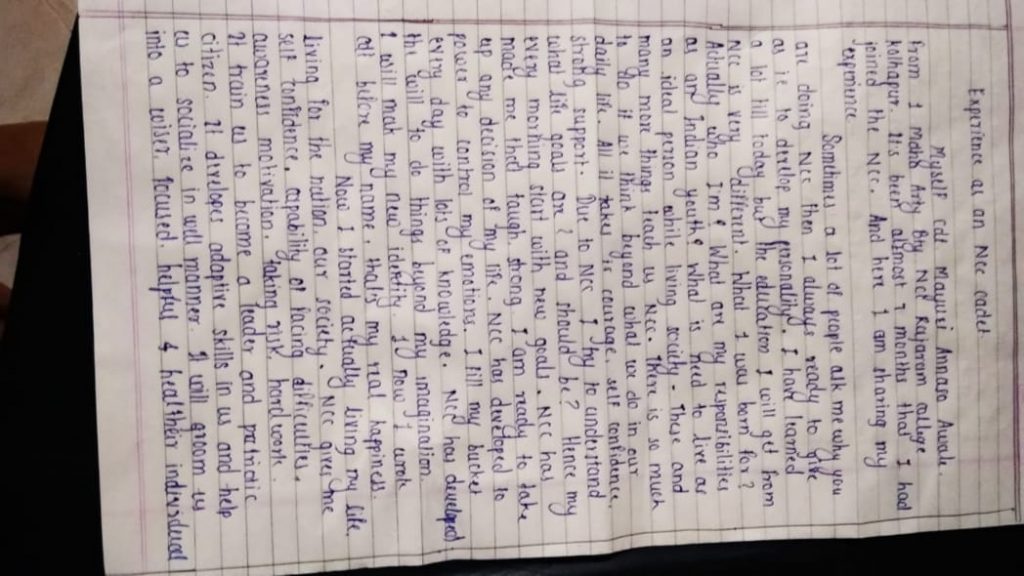 Experience as an Ncc cadet
Myself cdt. Mayuri Annaso Awale.
from 1 Mah Arty Bty NCC Rajaram college
kolhapur. It is been almost 7 months that I had
joined the Ncc. And here I am sharing my
experience
Sometimes a lot of people ask me why you
are doing Ncc then I always ready to give
as ie to develop my personality. I have learned
a lot till today but the education I will get from
Ncc is very different. What I was born for?
Actually who I'm? What are my responsibilities
as an Indian youth? What is need to live as
an ideal person while living society - These and
many more things teach us Ncc. There is so much
to go if we think beyond what we do in our
daily life. All it takes is courage, self confidence,
strong support. Due to Ncc I try to understand
what life goals are? and should be? Hence my
every morning start with new goals. Ncc has
made me that tough, strong I am ready to take
up any decision of my life. Ncc has developed to
power to control my emotions. I fill my bucket
every day with lots of knowledge. Ncc has developed
the will to do things beyond my imagination.
I will make my new identity. I now I wrote
cdt before my name. that's my real happiness.
Now I started actually living my life.
living for the nation, our society. Ncc gives me
self confidence, capability of facing difficulties,
awareness motivation, taking risk, hard work.
It train us to become a leader and patriotic
citizen. It developes adaptive skills in us and help
us to socialize in well manner. It will groom us
into a wiser, focused, helpful & healthier individual